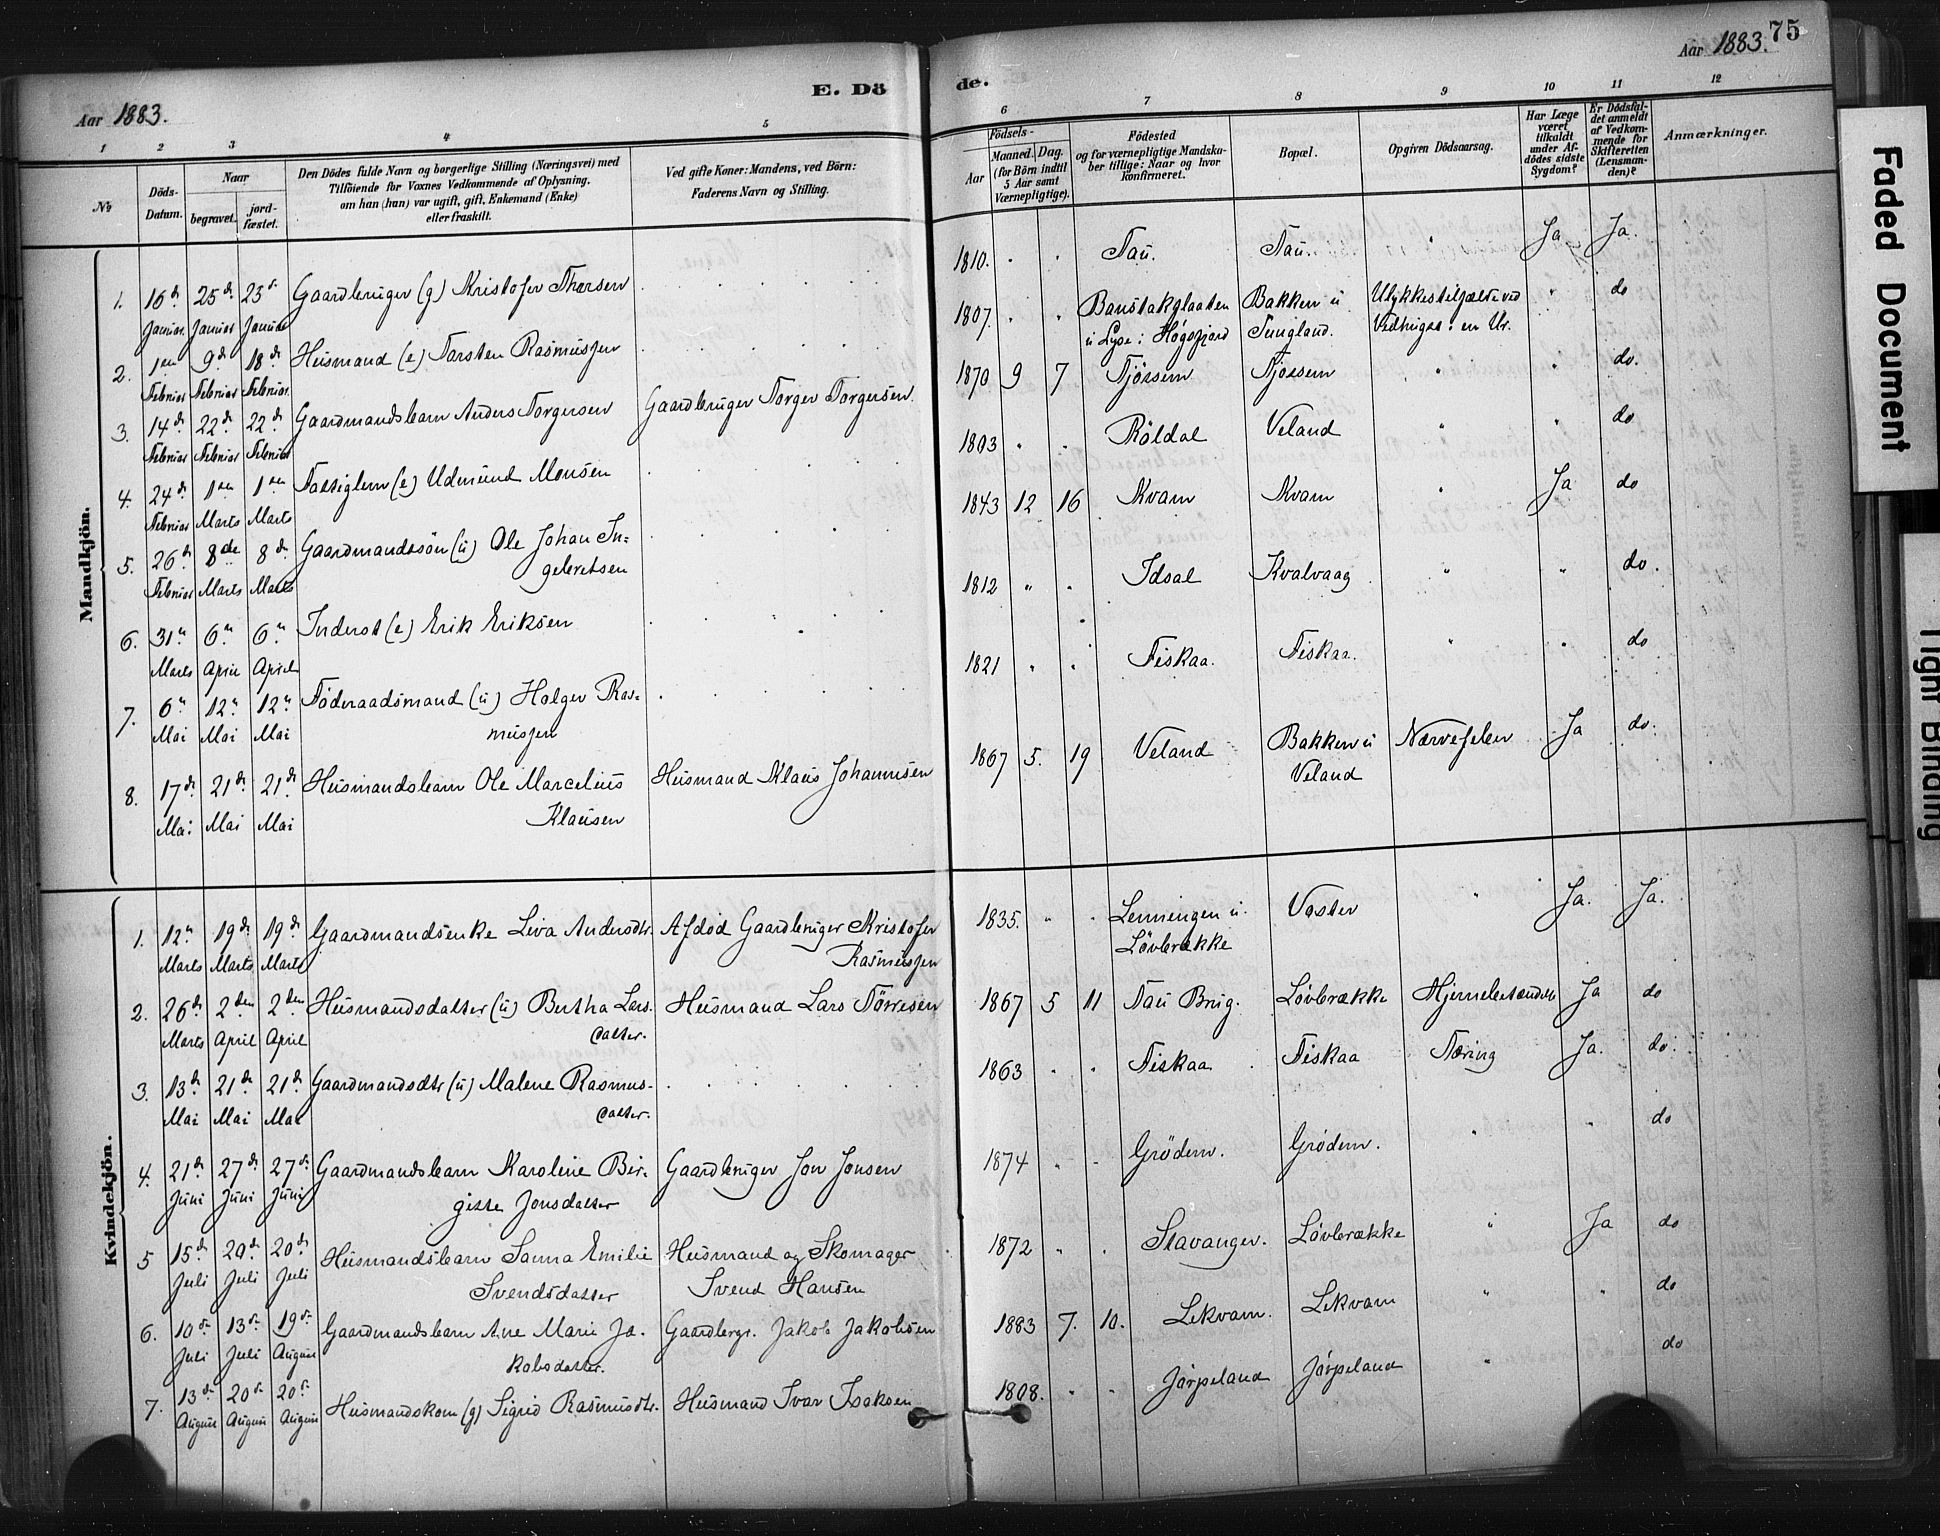 Aar 1883.
E. Dö
de.
Aar 1883.
75
1 2 3 4 5 6 7 8 9 10 11 12
No
Döds-
Datum.
Naar
begravet.
jord-
fæstet.
Den Dödes fulde Navn og borgerlige Stilling (Næringsvei) med
Tilföiende for Voxnes Vedkommende af Oplysning,
om han (hun) var ugift, gift, Enkemand (Enke)
eller fraskilt.
Ved gifte Koner: Mandens, ved Börn:
Faderens Navn og Stilling.
Födsels-
Aar
Maaned.
Dag.
(for Börn indtil
5 Aar samt
Værnepligtige).
Födested
og for værnepligtige Mandska-
ber tillige: Naar og hvor
konfirmeret.
Bopæl.
Opgiven Dödsaarsag.
Har Læge
været
tilkaldt
under Af-
dödes sidste
Sygdom?
Er Dödsfal-
det anmeldt
af Vedkom-
mende for
Skifteretten
(Lensman-
den)?
Anmærkninger.
Mandkjön.
1. 16de Januar 25de Januar 23de Januar Gaardbruger (g) Kristofer Thorsen 1810. Tau. Tau. " Ja Ja.
2. 1ste Februar 9de Februar 18de Februar Husmand (e) Torsten Rasmussen 1807. Banstakplaaten Bakken u Ulykkestilfælde ved " do
u Lyse i Høgsfjord Tungland. i en Ur.
3. 14de Februar 22de Februar 22de Februar Gaardmandsbarn Anders Torgersen Gaardbruger Torger Torgersen. 1870 9 7 Tjössem Tjössem " " do.
4. 24de Februar 1ste Marts 1ste Marts Fattiglem (e) Udmund Monsen 1803 Röldal Veland " " do
5. 26de Februar 8de Marts 8de Marts Gaardmandssön (u) Ole Johan In=
gebretsen 1843 12 16 Kvam Kvam " Ja do
6. 31te Marts 6te April 6te April Inderst (e) Erik Eriksen 1812 Idsal Kvalvaag " " do.
7. 6te Mai 12te Mai 12te Mai Föderaadsmand (u) Holger Ras=
mussen 1821 Fiskaa. Fiskaa. " " do
8. 17de Mai 21de Mai 21de Mai Husmandsbarn Ole Marcelius
Klausen Husmand Klaus Johannesen 1867 5. 19 Veland Bakken u
Veland Nervefeber Ja do.
Kvindekjön.
1. 12te Marts 19de Marts 19de Marts Gaardmandsenke Siva Andersdtr. Afdöd Gaardbruger Kristofer
Rasmussen 1835. Lenningen u.
Løvbrække Vaster " Ja. Ja.
2. 26de Marts 2den April 2den April Husmandsdatter (u) Bertha Lars-
datter. Husmand Lars Törresen 1867 5 11 Tau Brug. Løvbrække Hjernebetændelse Ja do
3. 13de Mai 21de Mai 21de Mai Gaardmandsdtr (u) Malene Rasmus-
datter. 1863 Fiskaa Fiskaa Tæring Ja. do.
4. 21de Juni 27de Juni 27de Juni Gaardmandsbarn Karoline Bir-
gitte Jonsdatter Gaardbruger Jon Jonsen 1874 Grödem. Grödem. " " do
5 15de Juli 20de Juli 20de Juli Husmandsbarn Sanna Emilie
Svendsdatter Husmand og Skomager
Svend Hansen 1872 Stavanger. Løvbrække " Ja do
6. 10de Juli 13de Juli 19de August Gaardmandsbarn Ane Marie Ja-
kobsdatter. Gaardbrgr. Jakob Jakobsen 1883 7. 10. Lekvam. Lekvam " " do
7. 13de August 20de August 20de August Husmandskone (g) Sigrid Rasmusdtr. Husmand Ivar Isaksen 1808. Jörpeland Jörpeland " do
Faded Document
Tight Binding